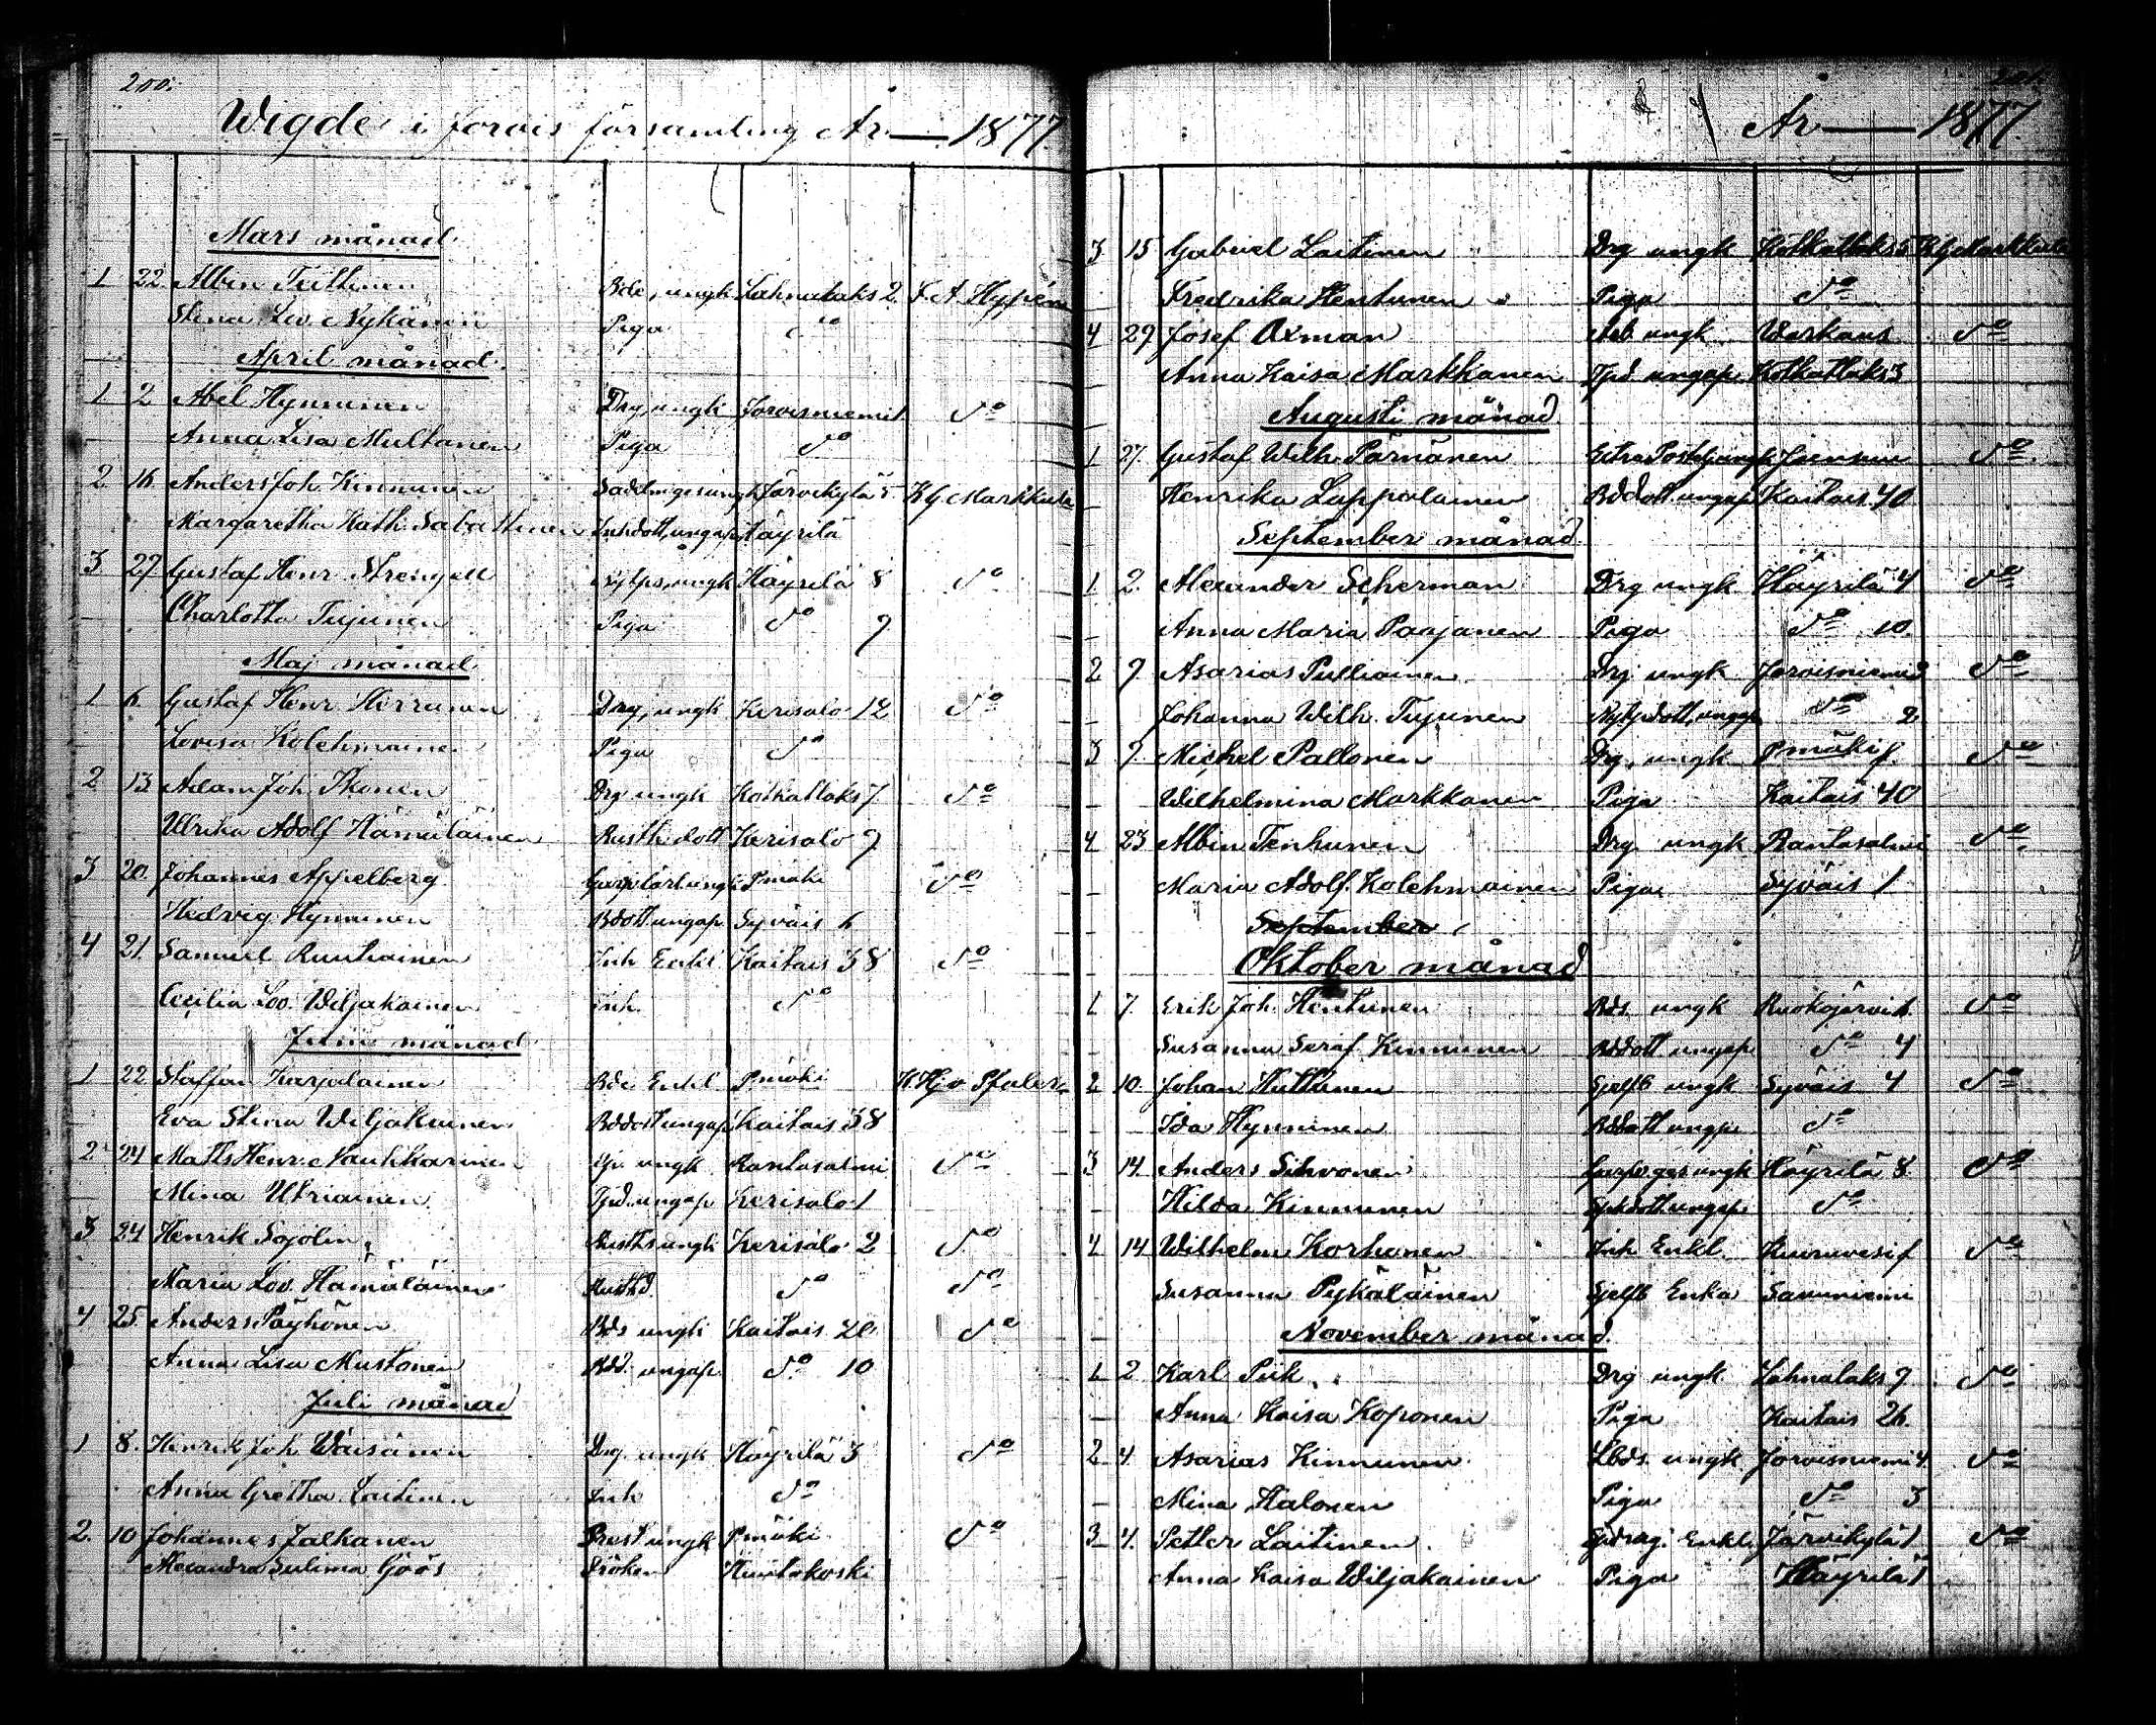 200.
Wigde i Jorois församling År — 1877
Mars månad.
1 22. Albin Tiittinen Bde, ungk Lahnalaks 2. F. A. Hypén
Stina Lov. Nykänen Piga do
April månad.
1 2 Abel Hynninen Drg, ungk Joroisniemi 1 do
Anna Lisa Multanen Piga do
2. 16. Anders Joh. Kinnunen Järvikylä 5 K G Markkula
Margaretha Kath. Sabastinen Inhdott, ungap Häyrilä
3 27 Gustaf Henr. Strengell ungk Häyrilä 8 do
Charlotta Tujunen Piga do 7
Maj månad
1 6. Gustaf Henr. Hirvunen Drg, ungk Kerisalo 12 do
Lovisa Kolehmainen Piga do
2 13 Adam Joh. Ikonen Drg ungk Kotkatlaks 7 do
Ulrika Adolf. Hämäläinen Rusth. dott Kerisalo 7
3 20. Johannes Appelberg Garfvlärl ungk Pmäki do
Hedvig Hynninen Bdott. ungap. Syväis 6
4 21. Samuel Ruuhainen Inh Enkl Kaitais 38 do
Cecilia Lov. Wiljakainen Inh. do
Junii månad
1 22 Staffan Karjalainen Bde Enkl Pmäki K. Hj. v Pfaler
Eva Stina Wiljakainen Bddott ungap Kaitais 38
2 24 Matts Henr. Naukkarinen ungk Rantasalmi do
Mina Utriainen Tjd. ungap Kerisalo 1
3 24 Henrik Sojolin Rusths ungk Kerisalo 2 do
Maria Lov. Hämäläinen Rusthd do do
4 25. Anders Päyhönen Bds ungk Kaitais 20. do
Anna Lisa Mustonen Bdd. ungap. do 10
Juli månad
1 8. Henrik Joh. Wäisänen Drg. ungk Häyrilä 3 do
Anna Gretha Laitinen Inh do
2. 10 Johannes Jalkanen Prest ungk Pmäki do
Alexandra Sulima Göös Fröken Huutokoski
201.
År — 1877.
3 15 Gabriel Laitinen Drg ungk Kotkatlaks 5 K G Markkula
Fredrika Hentunen Piga do
4 29 Josef Axman Arb. ungk. Warkaus do
Anna Kaisa Markkanen Tjd ungap. Kotkatlaks 3
Augusti månad.
1 27. Gustaf Wilh. Pärnänen Extra Postlj ungk Joensuu do
Henrika Lappalainen Bddott. ungap Kaitais 40
September månad.
1 2. Alexander Scherman Drg ungk Häyrilä 4 do
Anna Maria Paajanen Piga do 10.
2 9 Asarias Pulliainen Drg ungk Joroisniemi do
Johanna Wilh. Tujunen ungap do 2
3 9. Michel Pallonen Drg, ungk Pmäki do
Wilhelmina Markkanen Piga Kaitais 40
4 23 Albin Tenhunen Drg ungk Rantasalmi do
Maria Adolf. Kolehmainen Piga Syväis 1
September
Oktober månad
1 7. Erik Joh. Hentunen Bds. ungk Ruokojärvi do
Susanna Seraf. Kinnunen Bddott ungap. do 4
2 10. Johan Huttunen Sjelfb ungk Syväis 4 do
Ida Hynninen Bddott ungp. do
3 14. Anders Sihvonen ungk Häyrilä 8. do
Hilda Kinnunen ungap. do
4 14 Wilhelm Korhonen Inh Enkl. Kuruvesi do
Susanna Pykäläinen Sjelfb Enka Savuniemi
November månad.
1 2 Karl Piik Drg ungk. Lahnalaks 7 do
Anna Kaisa Koponen Piga Kaitais 26.
2 4. Asarias Kinnunen Lbds ungk Joroisniemi 4. do
Mina Halonen Piga do 3
3 4. Petter Laitinen Enkl. Järvikylä 1 do
Anna Kaisa Wiljakainen Piga Häyrilä 1